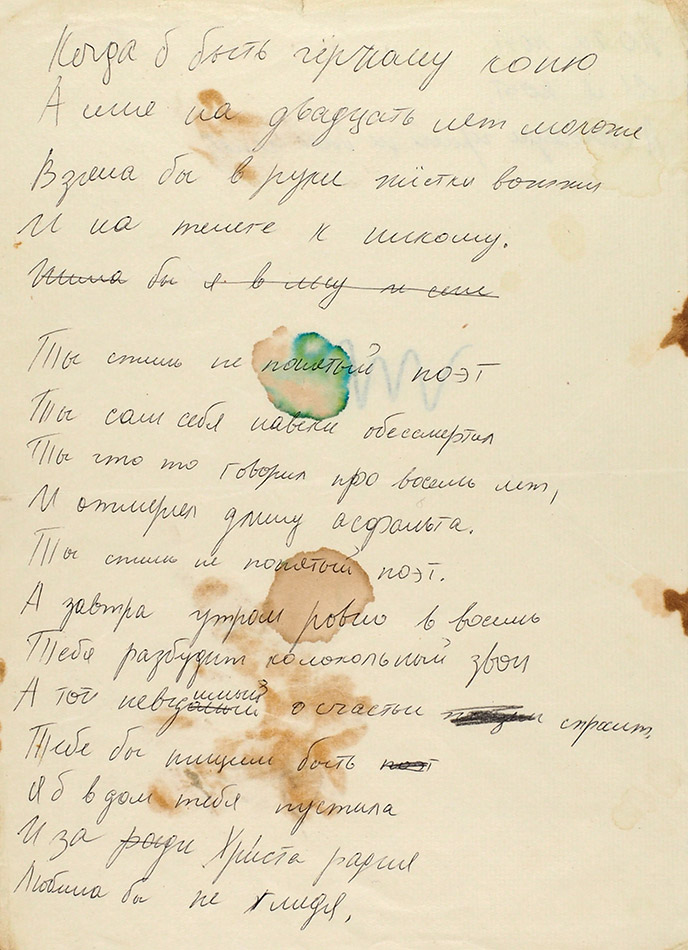 Когда б быть гёрчому коню
А мне на двадцать лет моложе
Взяла бы в руки жёстки вожжи
И на телеге к никому.
Жила бы я в лесу и
Ты спишь не понятый поэт
Ты сам себя навеки обессмертил
Ты что то говорил про восемь лет,
И отмерял длину асфальта.
Ты спишь не понятый поэт.
А завтра утром ровно в восемь
Тебя разбудит колокольный звон
А той о счастьи спросит,
Тебе бы нищим быть поэт
Я б в дом тебя пустила
И за ради Христа радия
Любила бы не глядя,